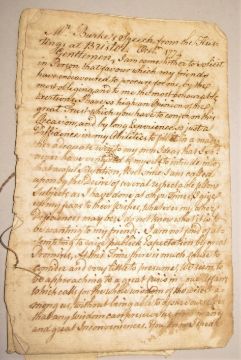 Mr. Burke's Speech from the Hus-
tings at Bristol Octr. 1774
Gentlemen, I am come hither to solicit
in Person that favour which my friends
have endeavoured to procure for me by the
most obliging and to me the most honourable
Exertions. I have so high an Opinion of the
great Trust which you have to confer on this
Occasion and by long Experience so just a
Diffidence in my abilities to fill it in a man-
ner adequate even to my own Ideas that I should
never have ventured of myself to intrude into
that awful Situation, but since I am called
upon by the desire of several respectable fellow
Subjects, as I have done at other times I give
up my fears to their wishes, whatever my other
Deficiencies may be, I do not know what it is to
be wanting to my friends. I am not fond of at-
tempting to raise publick Expectation by great
Promises. At this Time there is much cause to
consider and very little to presume, We seem to
be approaching to a great crisis in our Affairs
which calls for the whole wisdom of the wisest a-
mong us, without being able to assure ourselves
that any wisdom can preserve us from many
and great Inconveniences. You know I speak